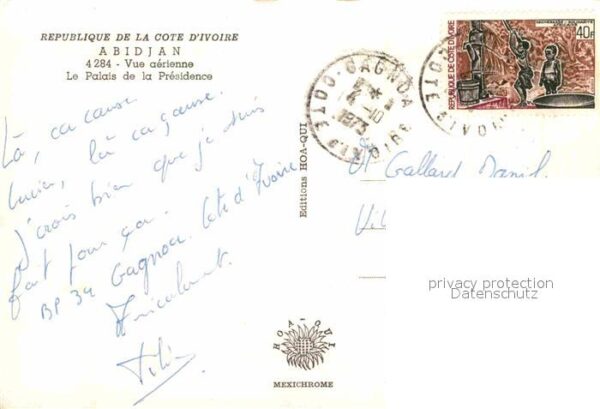 REPUBLIQUE DE LA COTE D'IVOIRE
ABIDJAN
4 284 - Vue aérienne
Le Palais de la Présidence
Là, ça cause
là ça gause.
J'crois bien que je suis
fait pour ça.
BP 34 Gagnoa. Côte d'Ivoire
Amicalement.
Editions HOA-QUI
HOA-QUI
MEXICHROME
GAGNOA
4 -10
1973
COTE D'IVOIRE
REPUBLIQUE DE COTE D'IVOIRE
40F
Mr Galland Daniel.
privacy protection
Datenschutz